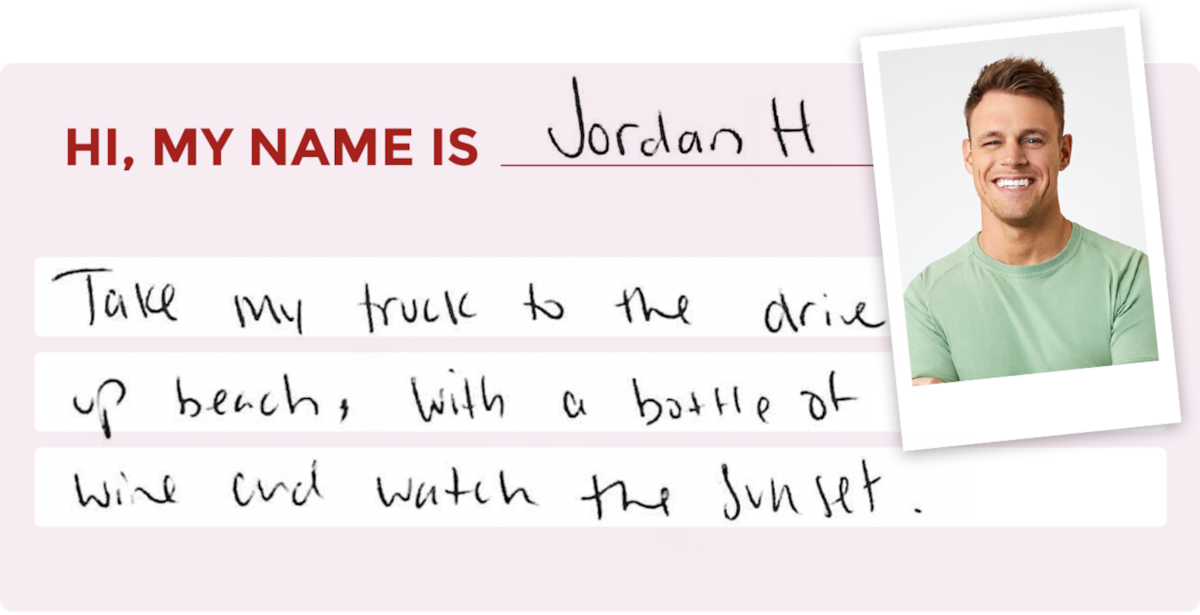 HI, MY NAME IS Jordan H
Take my truck to the drive
up beach, with a bottle of
wine and watch the sunset.